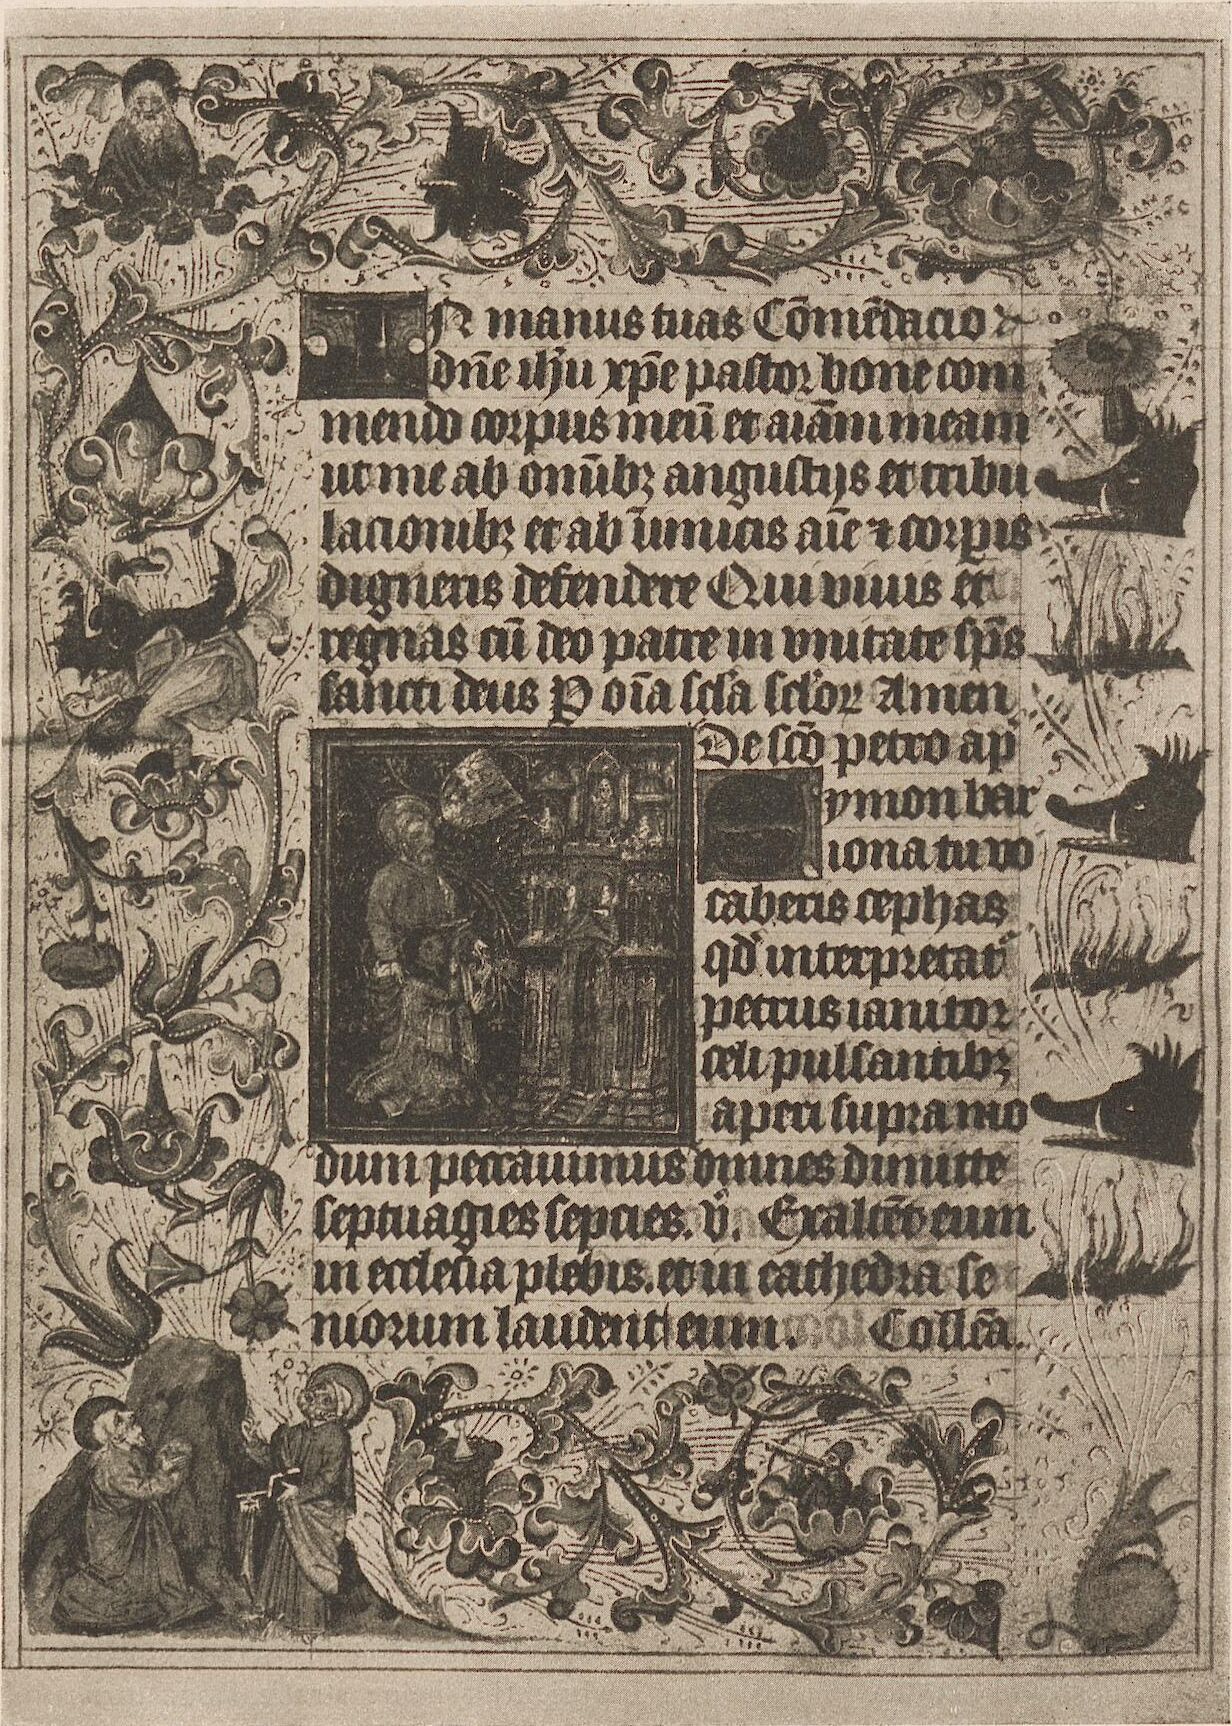 IN manus tuas Cōmēdacio &
dn̄e ih̄u xp̄e pastor bone com
mendo corpus meū et aīam meam
ut me ab om̄ibꝫ angustijs et tribu
lacionibꝫ et ab īimicis aīe ⁊ corpis
digneris defendere Qui viuis et
regnas cū deo patre in vnitate sp̄s
sancti deus P oīa scl̄a scl̄oꝝ Amen
De scō petro ap
Symon bar
iona tu vo
caberis cephas
qd̄ interpretat᷑
petrus ianitor
celi pulsantibꝫ
aperi supra mo
dum peccauimus omnes dimitte
septuagies sepcies. v̄. Exaltēt eum
in ecclesia plebis. et in cathedra se
niorum laudent eum. Collc̄a.